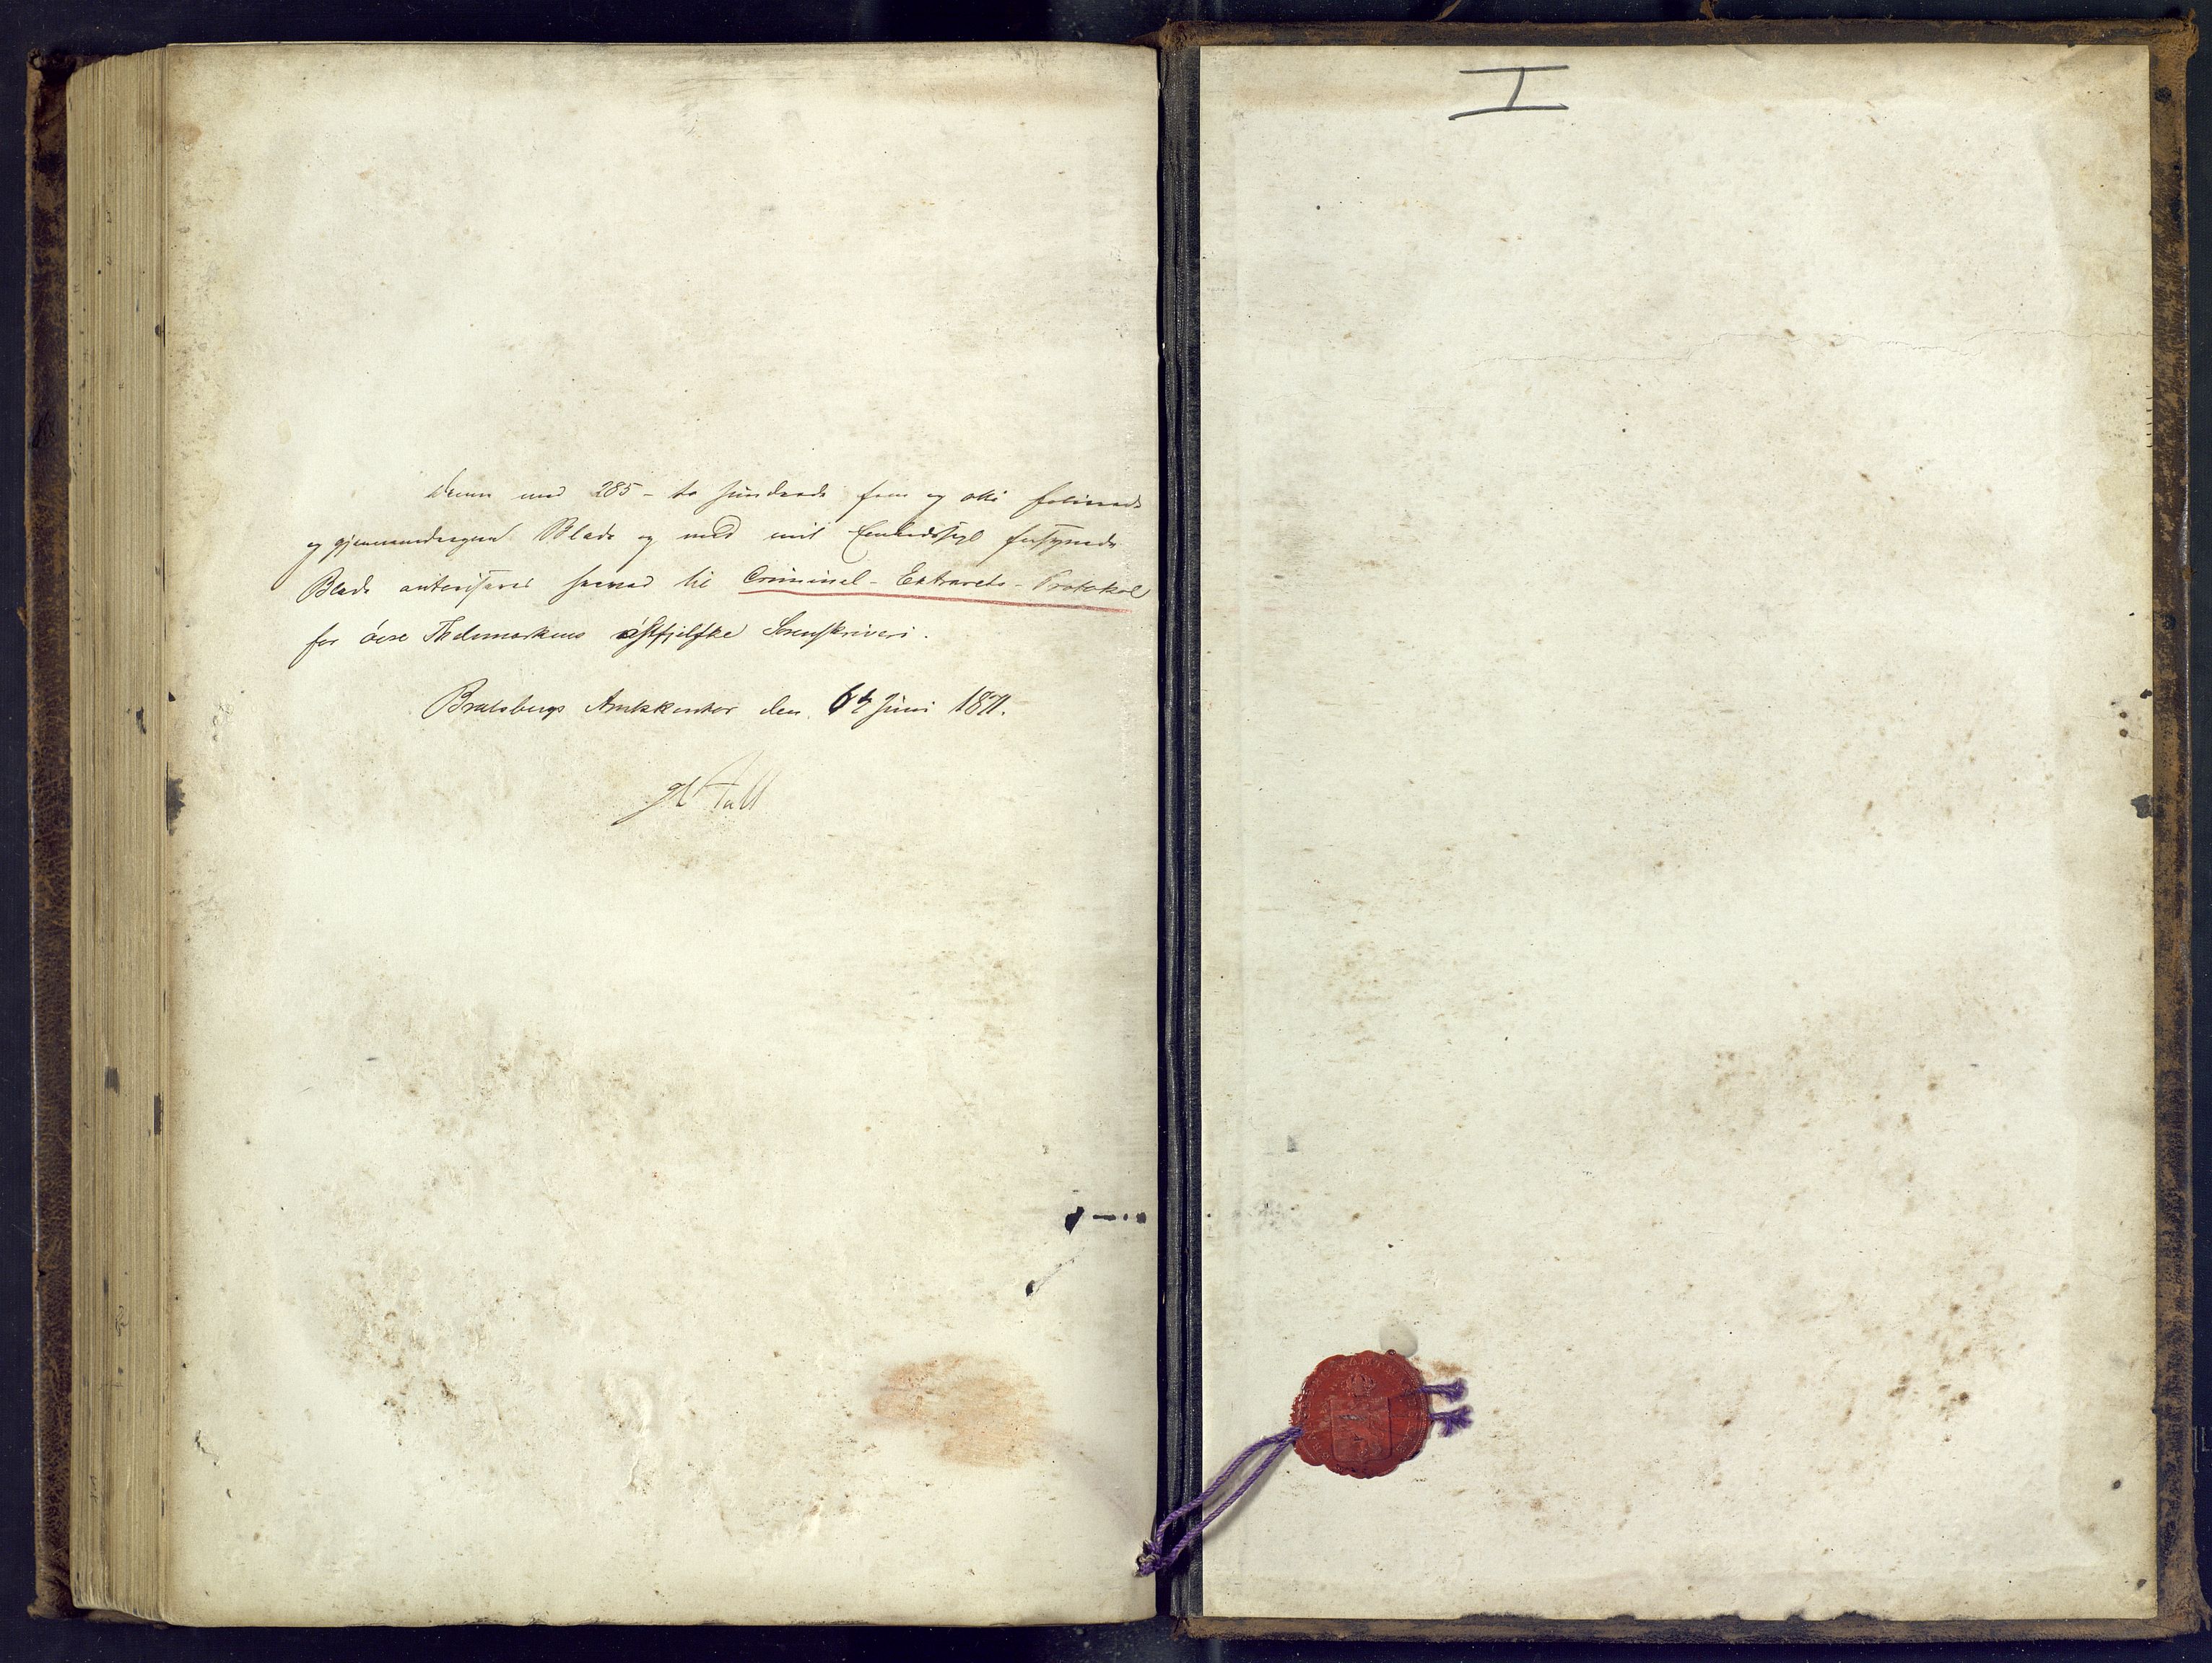 I
Denne med 285 - to hundrede fem og otti folierede
og gjennemdragne Blade og med mit Embedssegl forsynede
Blade autoriseres herved til Criminal - Extrarets - Protokol
for øvre Thelemarkens østfjelske Sorenskriveri.
Bratsbergs Amtskontor den 6 Juni 1871.